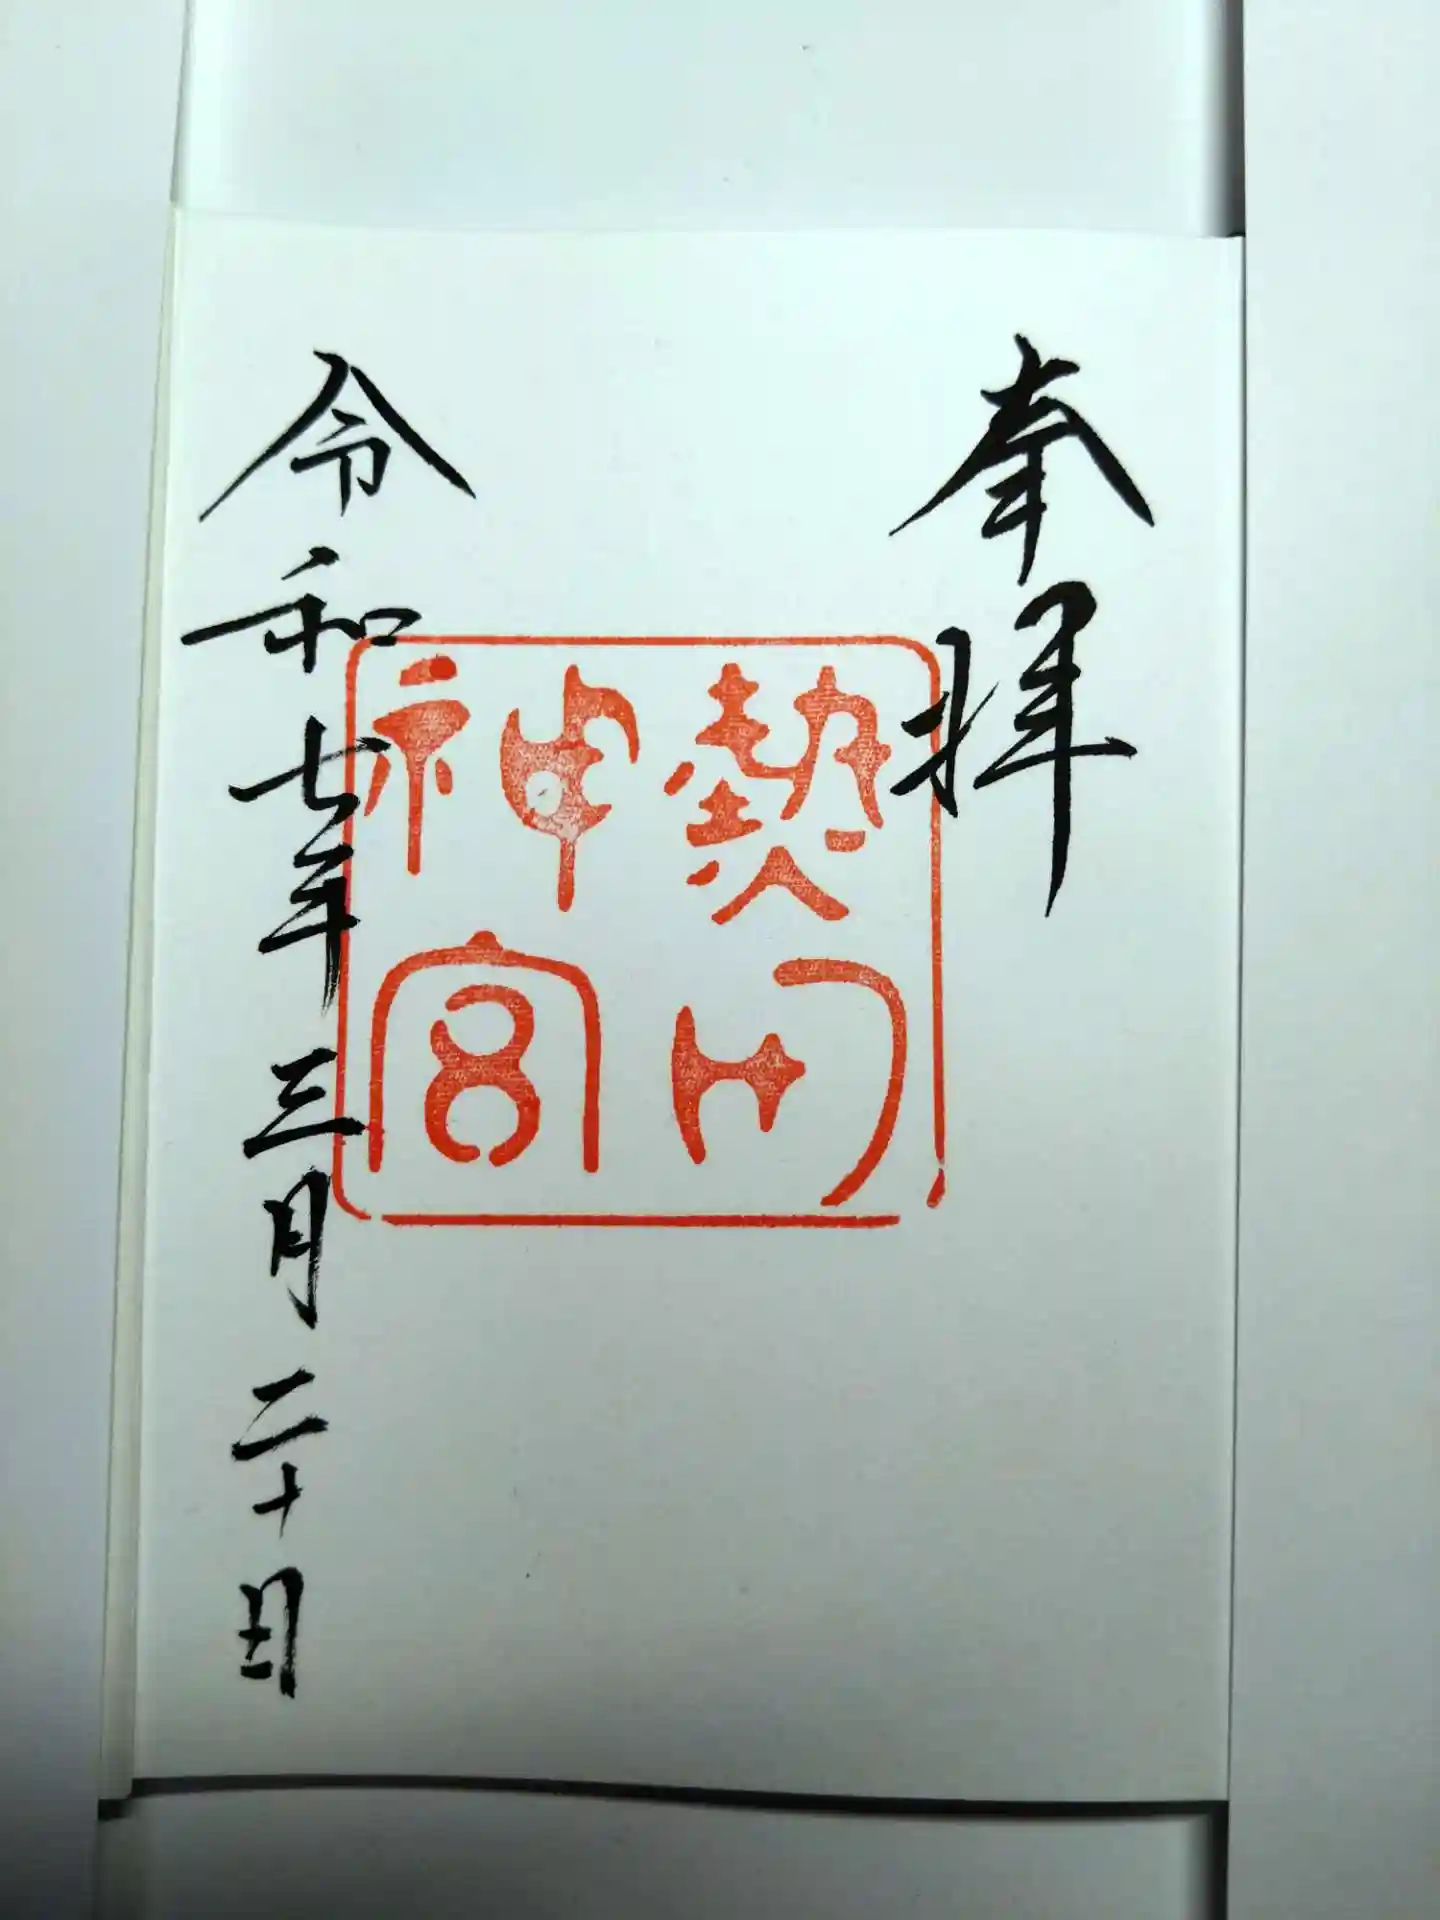 奉拝
熱田神宮
令和七年三月二十日